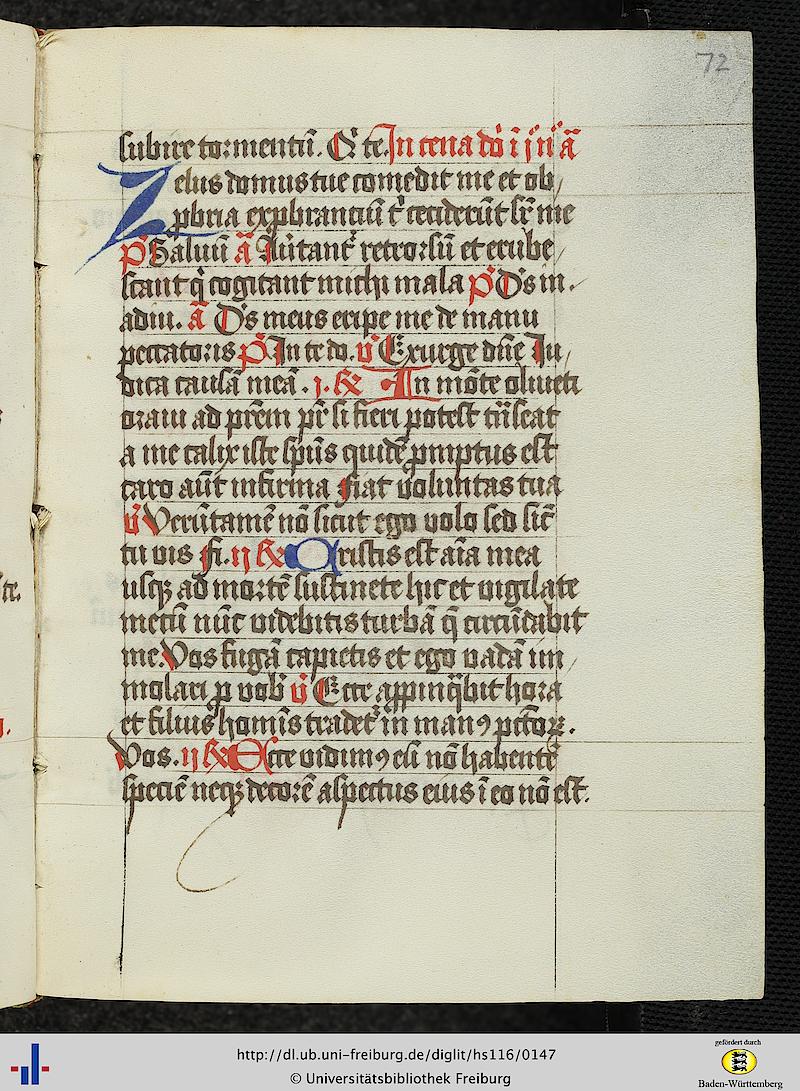 72
subire tormentū. Q' te. In cena dō i j n̄ ā
Zelus domus tue comedit me et ob/
ꝓbria exꝓbranciū t' ceciderūt sr̄ me
p̄s Saluū ā Auertant' retrorsū et erube/
scant q̇ cogitant michi mala p̄s Ds in.
adiu. ā Ds meus eripe me de manu
peccatoris p̄s In te do. v̄ Exurge dn̄e Iu/
dica causā meā. j. ℟ In mōte oliueti
oraui ad prēm pr̄ si fieri potest trāseat
a me calix iste sp̄us quidē ꝓmptus est
caro aūt infirma fiat voluntas tua
v̄ Verūtamē nō sicut ego volo sed sic̄
tu vis fi. ij ℟ Tristis est aīa mea
usqꝫ ad mortē sustinete hic et vigilate
mecū nūc videbitis turbā q̄ circūdabit
me. Vos fugā capietis et ego vadā im/
molari ꝓ vob' v̄ Ecce appinq̄bit hora
et filius homīs tradet' in manꝰ pctōrꝫ.
Vos. iij ℟ Ecce vidimꝰ eū nō habentē
speciē neqꝫ decorē aspectus eius ī eo nō est.
te.
http://dl.ub.uni-freiburg.de/diglit/hs116/0147
© Universitätsbibliothek Freiburg
gefördert durch
Baden-Württemberg